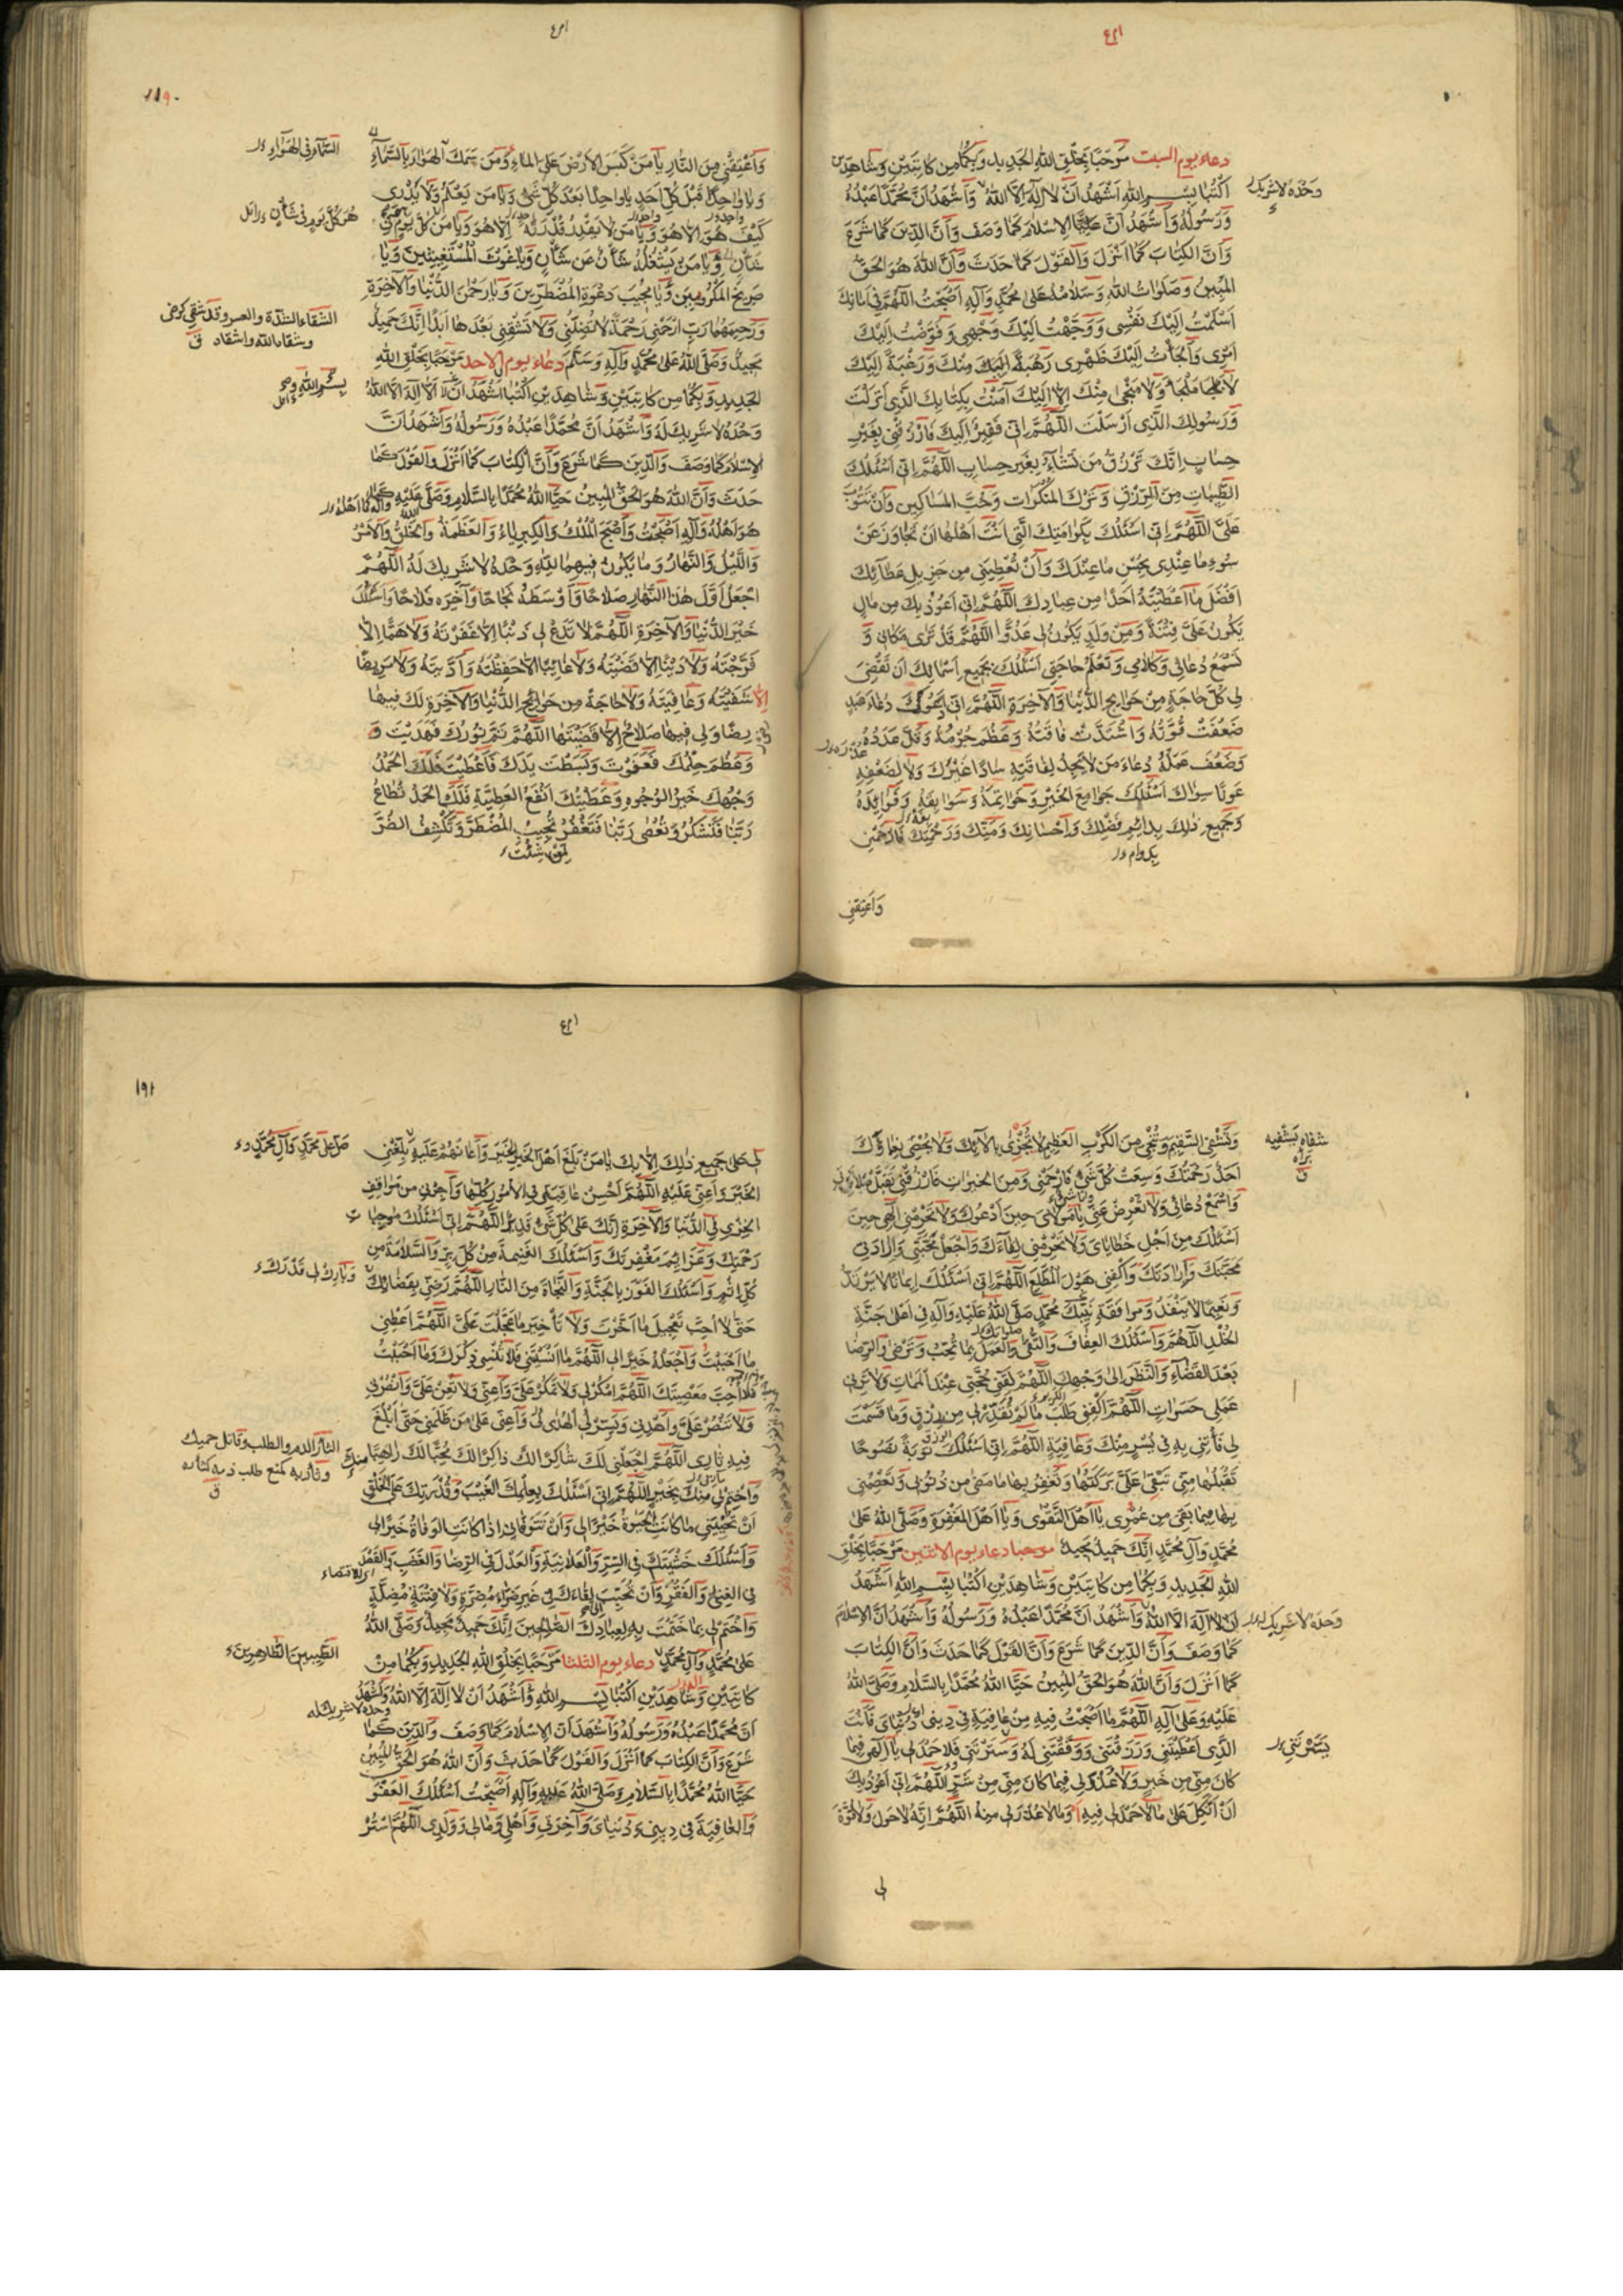 دعاء يوم السبت مَرْحَبًا بِخَلْقِ اللهِ الجَدِيدِ وَبِكُمَا مِن كَاتِبَيْنِ وَشَاهِدَيْنِ
اُكْتُبَا بِسْمِ اللهِ اَشْهَدُ اَنْ لَا اِلٰهَ اِلَّا اللهُ وَاَشْهَدُ اَنَّ مُحَمَّدًا عَبْدُهُ
وَحْدَهُ لَا شَرِيكَ
وَرَسُولُهُ وَاَشْهَدُ اَنَّ الاِسْلَامَ كَمَا وَصَفَ وَاَنَّ الدِّينَ كَمَا شَرَعَ
وَاَنَّ الكِتَابَ كَمَا اَنْزَلَ وَالقَوْلَ كَمَا حَدَّثَ وَاَنَّ اللهَ هُوَ الحَقُّ
المُبِينُ وَصَلَوَاتُ اللهِ وَسَلَامُهُ عَلَى مُحَمَّدٍ وَآلِهِ اَصْبَحْتُ اللّٰهُمَّ فِي اَمَانِكَ
اَسْلَمْتُ اِلَيْكَ نَفْسِي وَوَجَّهْتُ اِلَيْكَ وَجْهِي وَفَوَّضْتُ اِلَيْكَ
اَمْرِي وَاَلْجَأْتُ اِلَيْكَ ظَهْرِي رَهْبَةً مِنْكَ وَرَغْبَةً اِلَيْكَ
لَا مَلْجَأَ وَلَا مَنْجَى مِنْكَ اِلَّا اِلَيْكَ آمَنْتُ بِكِتَابِكَ الَّذِي اَنْزَلْتَ
وَرَسُولِكَ الَّذِي اَرْسَلْتَ اللّٰهُمَّ اِنِّي فَقِيرٌ اِلَيْكَ فَارْزُقْنِي بِغَيْرِ
حِسَابٍ اِنَّكَ تَرْزُقُ مَن تَشَاءُ بِغَيْرِ حِسَابٍ اللّٰهُمَّ اِنِّي اَسْئَلُكَ
الطَّيِّبَاتِ مِنَ الرِّزْقِ وَتَرْكَ المُنْكَرَاتِ وَحُبَّ المَسَاكِينِ وَاَنْ تَتُوبَ
عَلَيَّ اللّٰهُمَّ اِنِّي اَسْئَلُكَ بِكَرَامَتِكَ الَّتِي اَنْتَ اَهْلُهَا اَنْ تَجَاوَزَ عَنْ
سُوءِ مَا عِنْدِي بِحُسْنِ مَا عِنْدَكَ وَاَنْ تُعْطِيَنِي مِن جَزِيلِ عَطَائِكَ
اَفْضَلَ مَا اَعْطَيْتَهُ اَحَدًا مِن عِبَادِكَ اللّٰهُمَّ اِنِّي اَعُوذُ بِكَ مِن مَالٍ
يَكُونُ عَلَيَّ فِتْنَةً وَمِنْ وَلَدٍ يَكُونُ لِي عَدُوًّا اللّٰهُمَّ قَدْ تَرَى مَكَانِي وَ
تَسْمَعُ دُعَائِي وَكَلَامِي وَتَعْلَمُ حَاجَتِي اَسْئَلُكَ بِجَمِيعِ اَسْمَائِكَ اَنْ تَقْضِيَ
لِي كُلَّ حَاجَةٍ مِنْ حَوَائِجِ الدُّنْيَا وَالآخِرَةِ اللّٰهُمَّ اِنِّي اَدْعُوكَ دُعَاءَ عَبْدٍ
ضَعُفَتْ قُوَّتُهُ وَاشْتَدَّتْ فَاقَتُهُ وَعَظُمَ جُرْمُهُ وَقَلَّ عَدَدُهُ
وَضَعُفَ عَمَلُهُ دُعَاءَ مَن لَا يَجِدُ لِفَاقَتِهِ سَادًّا غَيْرَكَ وَلَا لِضَعْفِهِ
عَوْنًا سِوَاكَ اَسْئَلُكَ جَوَامِعَ الخَيْرِ وَخَوَاتِمَهُ وَسَوَابِقَهُ وَفَوَائِدَهُ
وَجَمِيعَ ذٰلِكَ بِدَائِمِ فَضْلِكَ وَاِحْسَانِكَ وَمَنِّكَ وَرَحْمَتِكَ فَارْحَمْنِي
وَاَعْتِقْنِي
١١٩٠
وَاَعْتِقْنِي مِنَ النَّارِ يَا مَنْ كَبَسَ الاَرْضَ عَلَى المَاءِ وَمَنْ سَمَكَ الهَوَاءَ بِالسَّمَاءِ
السَّمَاءَ فِي الهَوَاءِ
وَيَا وَاحِدًا قَبْلَ كُلِّ اَحَدٍ يَا وَاحِدًا بَعْدَ كُلِّ شَيْءٍ وَيَا مَن يَعْلَمُ وَلَا يَدْرِي
كَيْفَ هُوَ اِلَّا هُوَ وَيَا مَن لَا يَقْدِرُ قُدْرَتَهُ اِلَّا هُوَ وَيَا مَن كُلَّ يَوْمٍ فِي
هُوَ كُلَّ يَوْمٍ فِي شَأْنٍ
شَأْنٍ وَيَا مَن يَشْغَلُهُ شَأْنٌ عَن شَأْنٍ وَيَا غَوْثَ المُسْتَغِيثِينَ وَيَا
صَرِيخَ المَكْرُوبِينَ وَيَا مُجِيبَ دَعْوَةِ المُضْطَرِّينَ وَيَا رَحْمٰنَ الدُّنْيَا وَالآخِرَةِ
وَرَحِيمَهُمَا رَبِّ ارْحَمْنِي رَحْمَةً لَا تُضِلُّنِي وَلَا تُشْقِنِي بَعْدَهَا اَبَدًا اِنَّكَ حَمِيدٌ
مَجِيدٌ وَصَلَّى اللهُ عَلَى مُحَمَّدٍ وَآلِهِ وَسَلَّمَ دعاء يوم الاحد مَرْحَبًا بِخَلْقِ اللهِ
الجَدِيدِ وَبِكُمَا مِن كَاتِبَيْنِ وَشَاهِدَيْنِ اُكْتُبَا اَشْهَدُ اَنْ لَا اِلٰهَ اِلَّا اللهُ
وَحْدَهُ لَا شَرِيكَ لَهُ وَاَشْهَدُ اَنَّ مُحَمَّدًا عَبْدُهُ وَرَسُولُهُ وَاَشْهَدُ اَنَّ
الاِسْلَامَ كَمَا وَصَفَ وَالدِّينَ كَمَا شَرَعَ وَاَنَّ الكِتَابَ كَمَا اَنْزَلَ وَالقَوْلَ كَمَا
حَدَّثَ وَاَنَّ اللهَ هُوَ الحَقُّ المُبِينُ حَيَّا اللهُ مُحَمَّدًا بِالسَّلَامِ وَصَلَّى عَلَيْهِ كَمَا
هُوَ اَهْلُهُ وَآلِهِ اَصْبَحْتُ وَاَصْبَحَ المُلْكُ وَالكِبْرِيَاءُ وَالعَظَمَةُ وَالخَلْقُ وَالاَمْرُ
وَاللَّيْلُ وَالنَّهَارُ وَمَا يَكُونُ فِيهِمَا لِلّٰهِ وَحْدَهُ لَا شَرِيكَ لَهُ اللّٰهُمَّ
اجْعَلْ اَوَّلَ هٰذَا النَّهَارِ صَلَاحًا وَاَوْسَطَهُ نَجَاحًا وَآخِرَهُ فَلَاحًا وَاَسْئَلُكَ
خَيْرَ الدُّنْيَا وَالآخِرَةِ اللّٰهُمَّ لَا تَدَعْ لِي ذَنْبًا اِلَّا غَفَرْتَهُ وَلَا هَمًّا اِلَّا
فَرَّجْتَهُ وَلَا دَيْنًا اِلَّا قَضَيْتَهُ وَلَا غَائِبًا اِلَّا حَفِظْتَهُ وَاَدَّيْتَهُ وَلَا مَرِيضًا
اِلَّا شَفَيْتَهُ وَعَافَيْتَهُ وَلَا حَاجَةً مِن حَوَائِجِ الدُّنْيَا وَالآخِرَةِ لَكَ فِيهَا
رِضًا وَلِي فِيهَا صَلَاحٌ اِلَّا قَضَيْتَهَا اللّٰهُمَّ تَمَّ نُورُكَ فَهَدَيْتَ وَ
وَعَظُمَ حِلْمُكَ فَعَفَوْتَ وَبَسَطْتَ يَدَكَ فَاَعْطَيْتَ فَلَكَ الحَمْدُ
وَجْهُكَ خَيْرُ الوُجُوهِ وَعَطِيَّتُكَ اَنْفَعُ العَطِيَّةِ فَلَكَ الحَمْدُ تُطَاعُ
رَبَّنَا فَتَشْكُرُ وَتُعْصَى رَبَّنَا فَتَغْفِرُ تُجِيبُ المُضْطَرَّ وَتَكْشِفُ الضُّرَّ
لِمَنْ شِئْتَ
وَتَشْفِي السَّقِيمَ وَتُنْجِي مِنَ الكَرْبِ العَظِيمِ لَا يُجْزَى بِآلَائِكَ وَلَا يُحْصِي نَعْمَاؤُكَ
اَحَدٌ رَحْمَتُكَ وَسِعَتْ كُلَّ شَيْءٍ فَارْحَمْنِي وَمِنَ الخَيْرَاتِ فَارْزُقْنِي تَقَبَّلْ صَلَاتِي
وَاسْمَعْ دُعَائِي وَلَا تُعْرِضْ عَنِّي يَا مَوْلَايَ حِينَ اَدْعُوكَ وَلَا تَحْرِمْنِي اِلٰهِي حِينَ
اَسْئَلُكَ مِنْ اَجْلِ خَطَايَايَ وَلَا تَحْرِمْنِي لِقَاءَكَ وَاجْعَلْ مَحَبَّتِي وَاِرَادَتِي
مَحَبَّتَكَ وَاِرَادَتَكَ وَاكْفِنِي هَوْلَ المُطَّلَعِ اللّٰهُمَّ اِنِّي اَسْئَلُكَ اِيمَانًا لَا يَرْتَدُّ
وَنَعِيمًا لَا يَنْفَدُ وَمُرَافَقَةَ نَبِيِّكَ مُحَمَّدٍ صَلَّى اللهُ عَلَيْهِ وَآلِهِ فِي اَعْلَى جَنَّةِ
الخُلْدِ اللّٰهُمَّ وَاَسْئَلُكَ العَفَافَ وَالتُّقَى وَالعَمَلَ بِمَا تُحِبُّ وَتَرْضَى وَالرِّضَا
بَعْدَ القَضَاءِ وَالنَّظَرَ اِلَى وَجْهِكَ اللّٰهُمَّ لَقِّنِّي حُجَّتِي عِنْدَ المَمَاتِ وَلَا تُرِنِي
عَمَلِي حَسَرَاتٍ اللّٰهُمَّ اكْفِنِي طَلَبَ مَا لَمْ تُقَدِّرْ لِي مِن رِزْقٍ وَمَا قَسَمْتَ
لِي فَأْتِنِي بِهِ فِي يُسْرٍ مِنْكَ وَعَافِيَةٍ اللّٰهُمَّ اِنِّي اَسْئَلُكَ تَوْبَةً نَصُوحًا
تَقْبَلُهَا مِنِّي تَبْقَى عَلَيَّ بَرَكَتُهَا وَتَغْفِرُ بِهَا مَا مَضَى مِن ذُنُوبِي وَتَعْصِمُنِي
بِهَا فِيمَا بَقِيَ مِن عُمْرِي يَا اَهْلَ التَّقْوَى وَيَا اَهْلَ المَغْفِرَةِ وَصَلَّى اللهُ عَلَى
مُحَمَّدٍ وَآلِ مُحَمَّدٍ اِنَّكَ حَمِيدٌ مَجِيدٌ مرحبا دعاء يوم الاثنين مَرْحَبًا بِخَلْقِ
اللهِ الجَدِيدِ وَبِكُمَا مِن كَاتِبَيْنِ وَشَاهِدَيْنِ اُكْتُبَا بِسْمِ اللهِ اَشْهَدُ
اَنْ لَا اِلٰهَ اِلَّا اللهُ وَاَشْهَدُ اَنَّ مُحَمَّدًا عَبْدُهُ وَرَسُولُهُ وَاَشْهَدُ اَنَّ الاِسْلَامَ
وحده لا شريك له
كَمَا وَصَفَ وَاَنَّ الدِّينَ كَمَا شَرَعَ وَاَنَّ القَوْلَ كَمَا حَدَّثَ وَاَنَّ الكِتَابَ
كَمَا اَنْزَلَ وَاَنَّ اللهَ هُوَ الحَقُّ المُبِينُ حَيَّا اللهُ مُحَمَّدًا بِالسَّلَامِ وَصَلَّى اللهُ
عَلَيْهِ وَعَلَى آلِهِ اللّٰهُمَّ مَا اَصْبَحْتُ فِيهِ مِنْ عَافِيَةٍ فِي دِينِي وَدُنْيَايَ فَاَنْتَ
الَّذِي اَعْطَيْتَنِي وَرَزَقْتَنِي وَوَفَّقْتَنِي لَهُ وَسَتَرْتَنِي فَلَا حَمْدَ لِي يَا اِلٰهِي فِيمَا
كَانَ مِنِّي مِن خَيْرٍ وَلَا عُذْرَ لِي فِيمَا كَانَ مِنِّي مِنْ شَرٍّ اللّٰهُمَّ اِنِّي اَعُوذُ بِكَ
اَنْ اَتَّكِلَ عَلَى مَا لَا حَمْدَ لِي فِيهِ اَوْ مَا لَا عُذْرَ لِي مِنْهُ اللّٰهُمَّ اِنَّهُ لَا حَوْلَ وَلَا قُوَّةَ
لِي
١٩١
لِي عَلَى جَمِيعِ ذٰلِكَ اِلَّا بِكَ يَا مَنْ بَلَّغَ اَهْلَ الخَيْرِ الخَيْرَ وَاَعَانَهُمْ عَلَيْهِ بَلِّغْنِي
صَلِّ عَلَى مُحَمَّدٍ وَآلِ مُحَمَّدٍ
الخَيْرَ وَاَعِنِّي عَلَيْهِ اللّٰهُمَّ اَحْسِنْ عَاقِبَتِي فِي الاُمُورِ كُلِّهَا وَاَجِرْنِي مِن مَوَاقِفِ
الخِزْيِ فِي الدُّنْيَا وَالآخِرَةِ اِنَّكَ عَلَى كُلِّ شَيْءٍ قَدِيرٌ اللّٰهُمَّ اِنِّي اَسْئَلُكَ مُوجِبَاتِ
رَحْمَتِكَ وَعَزَائِمَ مَغْفِرَتِكَ وَاَسْئَلُكَ الغَنِيمَةَ مِنْ كُلِّ بِرٍّ وَالسَّلَامَةَ مِن
كُلِّ اِثْمٍ وَاَسْئَلُكَ الفَوْزَ بِالجَنَّةِ وَالنَّجَاةَ مِنَ النَّارِ اللّٰهُمَّ رَضِّنِي بِقَضَائِكَ
وَبَارِكْ لِي فِي قَدَرِكَ
حَتَّى لَا اُحِبَّ تَعْجِيلَ مَا اَخَّرْتَ وَلَا تَأْخِيرَ مَا عَجَّلْتَ عَلَيَّ اللّٰهُمَّ اَعْطِنِي
مَا اَحْبَبْتُ وَاجْعَلْهُ خَيْرًا لِي اللّٰهُمَّ مَا اَنْسَيْتَنِي فَلَا تُنْسِنِي ذِكْرَكَ وَمَا اَحْبَبْتُ
فَلَا اُحِبَّ مَعْصِيَتَكَ اللّٰهُمَّ امْكُرْ لِي وَلَا تَمْكُرْ عَلَيَّ وَاَعِنِّي وَلَا تُعِنْ عَلَيَّ وَانْصُرْنِي
وَلَا تَنْصُرْ عَلَيَّ وَاهْدِنِي وَيَسِّرْ لِي الهُدَى لِي وَاَعِنِّي عَلَى مَن ظَلَمَنِي حَتَّى اَبْلُغَ
فِيهِ ثَارِي اللّٰهُمَّ اجْعَلْنِي لَكَ شَاكِرًا لَكَ ذَاكِرًا لَكَ مُحِبًّا لَكَ رَاهِبًا
وَاخْتِمْ لِي مِنْكَ بِخَيْرٍ اللّٰهُمَّ اِنِّي اَسْئَلُكَ بِعِلْمِكَ الغَيْبَ وَقُدْرَتِكَ عَلَى الخَلْقِ
اَنْ تُحْيِيَنِي مَا كَانَتِ الحَيٰوةُ خَيْرًا لِي وَاَنْ تَتَوَفَّانِي اِذَا كَانَتِ الوَفَاةُ خَيْرًا لِي
وَاَسْئَلُكَ خَشْيَتَكَ فِي السِّرِّ وَالعَلَانِيَةِ وَالعَدْلَ فِي الرِّضَا وَالغَضَبِ وَالقَصْدَ
فِي الغِنَى وَالفَقْرِ وَاَنْ تُحَبِّبَ لِقَاءَكَ فِي غَيْرِ ضَرَّاءَ مُضِرَّةٍ وَلَا فِتْنَةٍ مُضِلَّةٍ
وَاخْتِمْ لِي بِمَا خَتَمْتَ بِهِ لِعِبَادِكَ الصَّالِحِينَ اِنَّكَ حَمِيدٌ مَجِيدٌ وَصَلَّى اللهُ
عَلَى مُحَمَّدٍ وَآلِ مُحَمَّدٍ دعاء يوم الثلثا مَرْحَبًا بِخَلْقِ اللهِ الجَدِيدِ وَبِكُمَا مِنْ
الطَّيِّبِينَ الطَّاهِرِينَ
كَاتِبَيْنِ وَشَاهِدَيْنِ اُكْتُبَا بِسْمِ اللهِ وَاَشْهَدُ اَنْ لَا اِلٰهَ اِلَّا اللهُ وَاَشْهَدُ
وحده لا شريك له
اَنَّ مُحَمَّدًا عَبْدُهُ وَرَسُولُهُ وَاَشْهَدُ اَنَّ الاِسْلَامَ كَمَا وَصَفَ وَالدِّينَ كَمَا
شَرَعَ وَاَنَّ الكِتَابَ كَمَا اَنْزَلَ وَالقَوْلَ كَمَا حَدَّثَ وَاَنَّ اللهَ هُوَ الحَقُّ المُبِينُ
حَيَّا اللهُ مُحَمَّدًا بِالسَّلَامِ وَصَلَّى اللهُ عَلَيْهِ وَآلِهِ اَصْبَحْتُ اَسْئَلُكَ العَفْوَ
وَالعَافِيَةَ فِي دِينِي وَدُنْيَايَ وَآخِرَتِي وَاَهْلِي وَمَالِي وَوَلَدِي اللّٰهُمَّ اسْتُرْ